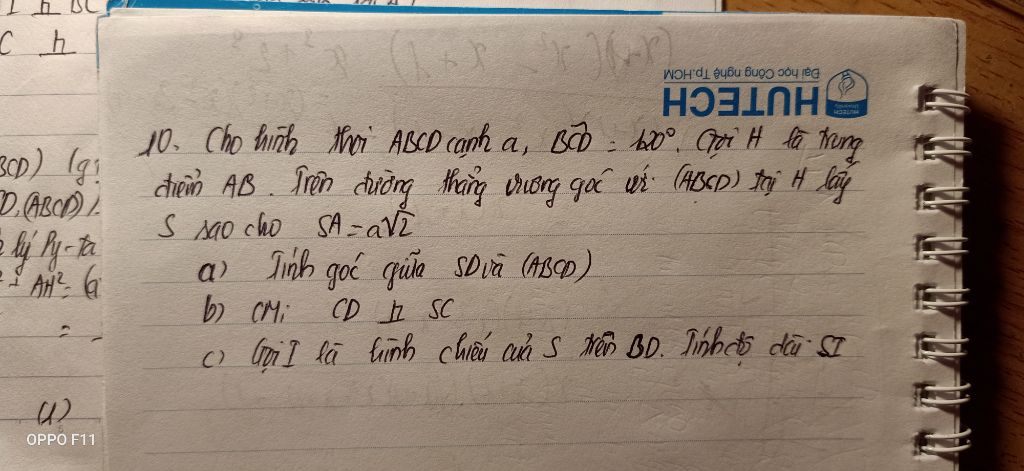 I h BC
C h
HUTECH
Đại học Công nghệ Tp.HCM
10. Cho hình thoi ABCD cạnh a, BCD = 120°. Gọi H là trung
điểm AB. Trên đường thẳng vuông góc với (ABCD) tại H lấy
S sao cho SA = a√2
a) Tính góc giữa SD và (ABCD)
b) CM: CD h SC
c) Gọi I là hình chiếu của S trên BD. Tính độ dài SI
BCD)
D, (ABCD)
lý Py-ta
AH² = (a
=
(1)
OPPO F11